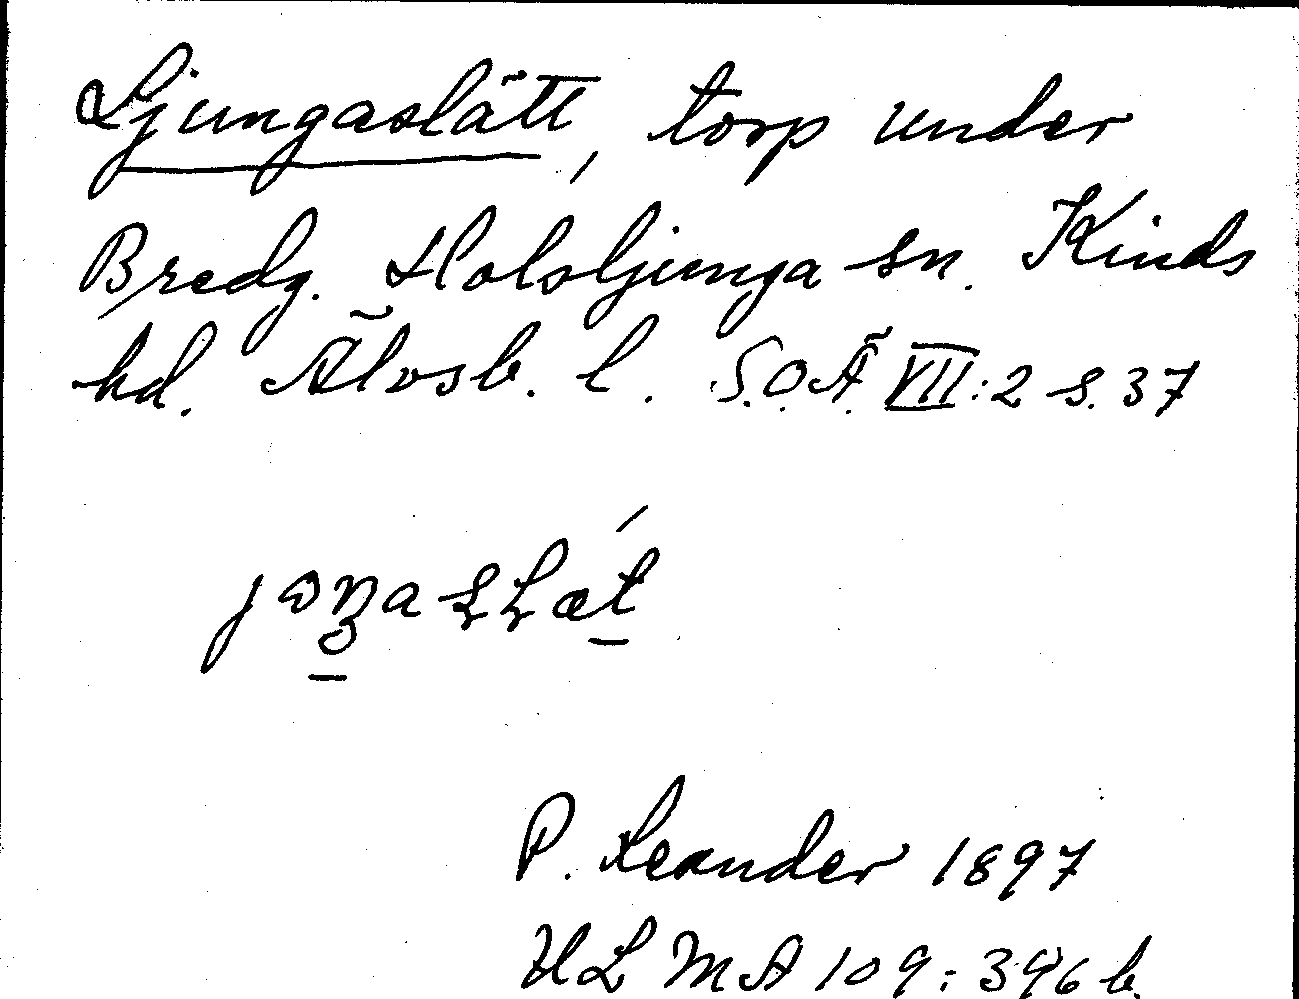 Ljungaslätt, torp under
Bredg. Holsljunga sn. Kinds
hd. Älvsb. l. S.O.Ä. VII:2 s. 37
P. Leander 1897
ULMA 109:396 b.